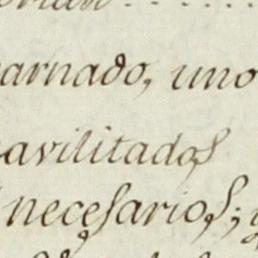 arnado, uno
avilitados
neçesarios;